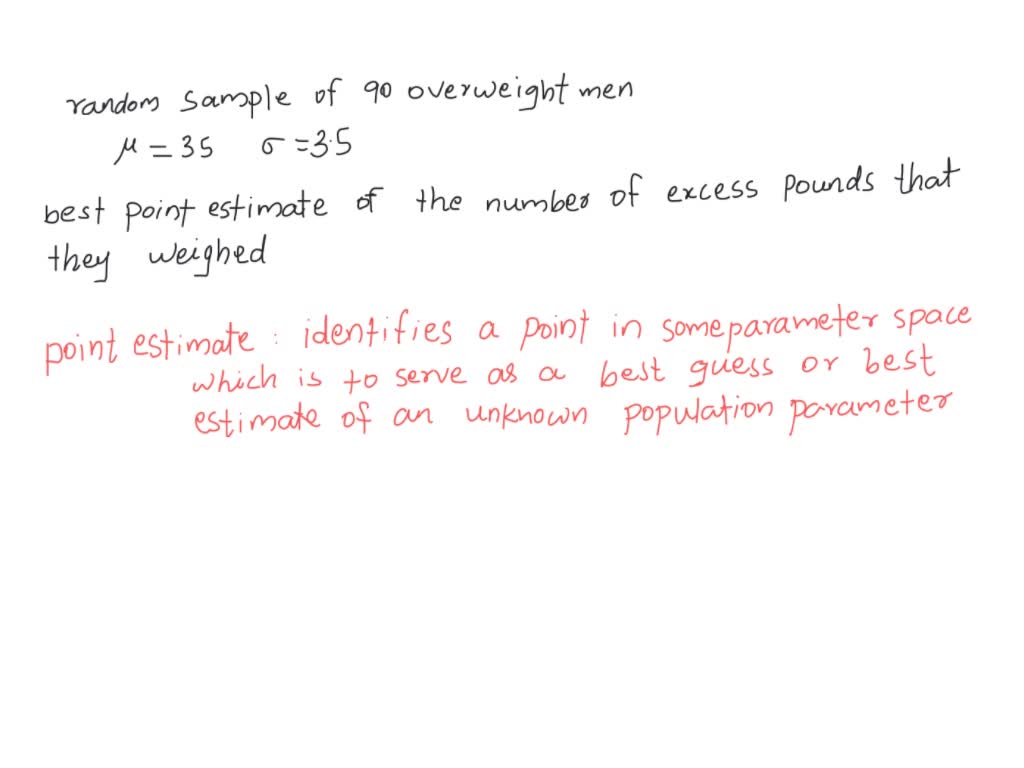 random sample of 90 overweight men
μ = 35 σ = 3.5
best point estimate of the number of excess pounds that
they weighed
point estimate : identifies a point in some parameter space
which is to serve as a best guess or best
estimate of an unknown population parameter